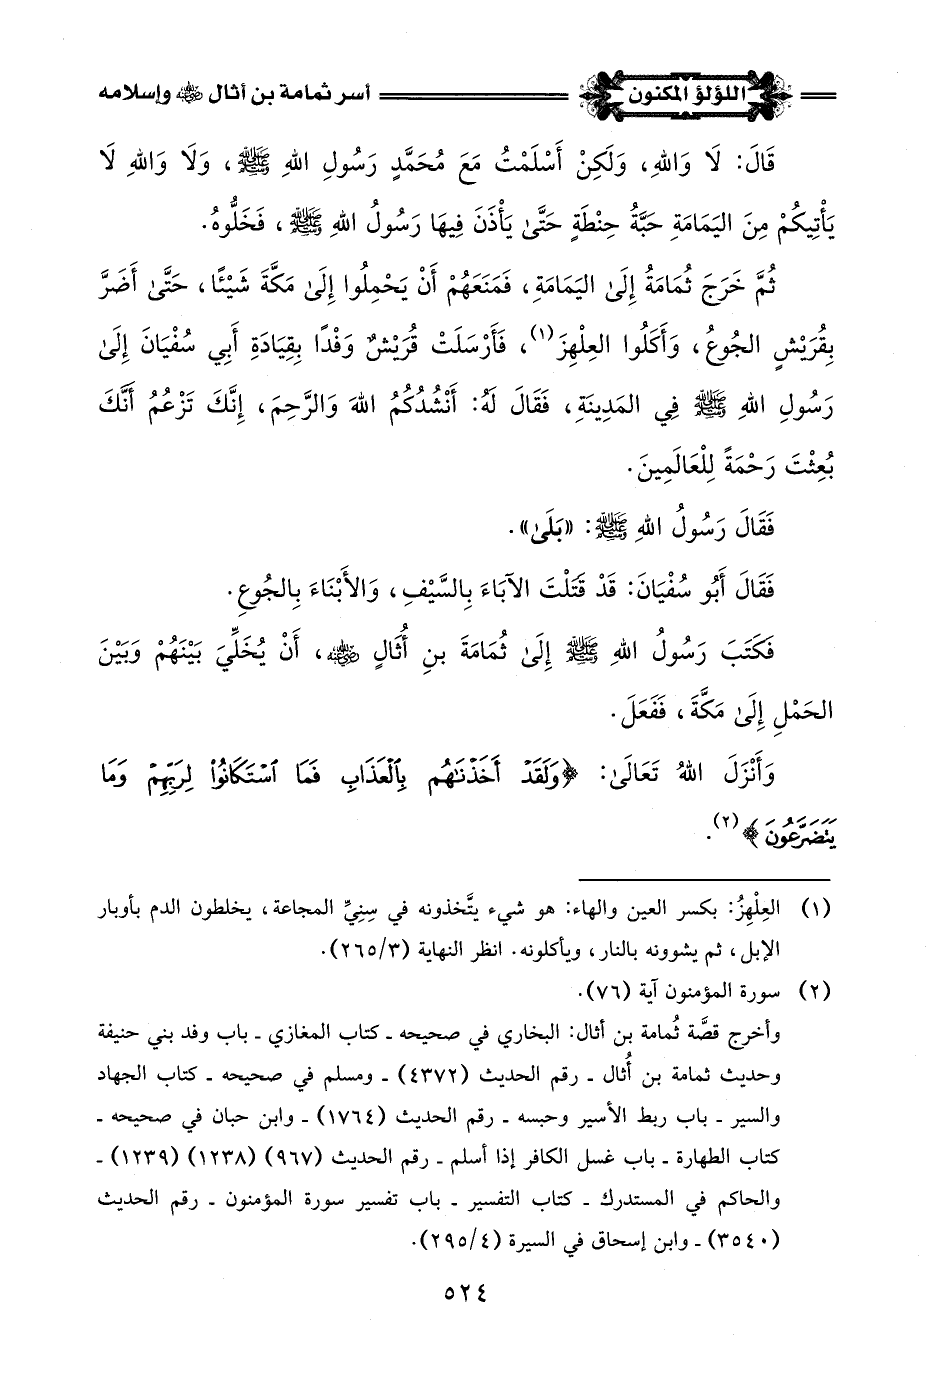 اللؤلؤ المكنون أسر ثمامة بن أثال رضي الله عنه وإسلامه
قَالَ: لَا وَاللهِ، وَلَكِنْ أَسْلَمْتُ مَعَ مُحَمَّدٍ رَسُولِ اللهِ ﷺ، وَلَا وَاللهِ لَا
يَأْتِيكُمْ مِنَ اليَمَامَةِ حَبَّةُ حِنْطَةٍ حَتَّىٰ يَأْذَنَ فِيهَا رَسُولُ اللهِ ﷺ، فَخَلُّوهُ.
ثُمَّ خَرَجَ ثُمَامَةُ إِلَىٰ اليَمَامَةِ، فَمَنَعَهُمْ أَنْ يَحْمِلُوا إِلَىٰ مَكَّةَ شَيْئًا، حَتَّىٰ أَضَرَّ
بِقُرَيْشٍ الجُوعُ، وَأَكَلُوا العِلْهِزَ(١)، فَأَرْسَلَتْ قُرَيْشٌ وَفْدًا بِقِيَادَةِ أَبِي سُفْيَانَ إِلَىٰ
رَسُولِ اللهِ ﷺ فِي المَدِينَةِ، فَقَالَ لَهُ: أَنْشُدُكُمُ اللهَ وَالرَّحِمَ، إِنَّكَ تَزْعُمُ أَنَّكَ
بُعِثْتَ رَحْمَةً لِلْعَالَمِينَ.
فَقَالَ رَسُولُ اللهِ ﷺ: «بَلَىٰ».
فَقَالَ أَبُو سُفْيَانَ: قَدْ قَتَلْتَ الآبَاءَ بِالسَّيْفِ، وَالأَبْنَاءَ بِالجُوعِ.
فَكَتَبَ رَسُولُ اللهِ ﷺ إِلَىٰ ثُمَامَةَ بنِ أُثَالٍ رضي الله عنه، أَنْ يُخَلِّيَ بَيْنَهُمْ وَبَيْنَ
الحَمْلِ إِلَىٰ مَكَّةَ، فَفَعَلَ.
وَأَنْزَلَ اللهُ تَعَالَىٰ: ﴿وَلَقَدْ أَخَذْنَٰهُم بِٱلْعَذَابِ فَمَا ٱسْتَكَانُوا۟ لِرَبِّهِمْ وَمَا
يَتَضَرَّعُونَ﴾(٢).
(١) العِلْهِزُ: بكسر العين والهاء: هو شيء يتَّخذونه في سِنِيِّ المجاعة، يخلطون الدم بأوبار
الإبل، ثم يشوونه بالنار، ويأكلونه. انظر النهاية (٢٦٥/٣).
(٢) سورة المؤمنون آية (٧٦).
وأخرج قصَّة ثُمامة بن أثال: البخاري في صحيحه ـ كتاب المغازي ـ باب وفد بني حنيفة
وحديث ثمامة بن أُثال ـ رقم الحديث (٤٣٧٢) ـ ومسلم في صحيحه ـ كتاب الجهاد
والسير ـ باب ربط الأسير وحبسه ـ رقم الحديث (١٧٦٤) ـ وابن حبان في صحيحه ـ
كتاب الطهارة ـ باب غسل الكافر إذا أسلم ـ رقم الحديث (٩٦٧) (١٢٣٨) (١٢٣٩) ـ
والحاكم في المستدرك ـ كتاب التفسير ـ باب تفسير سورة المؤمنون ـ رقم الحديث
(٣٥٤٠) ـ وابن إسحاق في السيرة (٢٩٥/٤).
٥٢٤